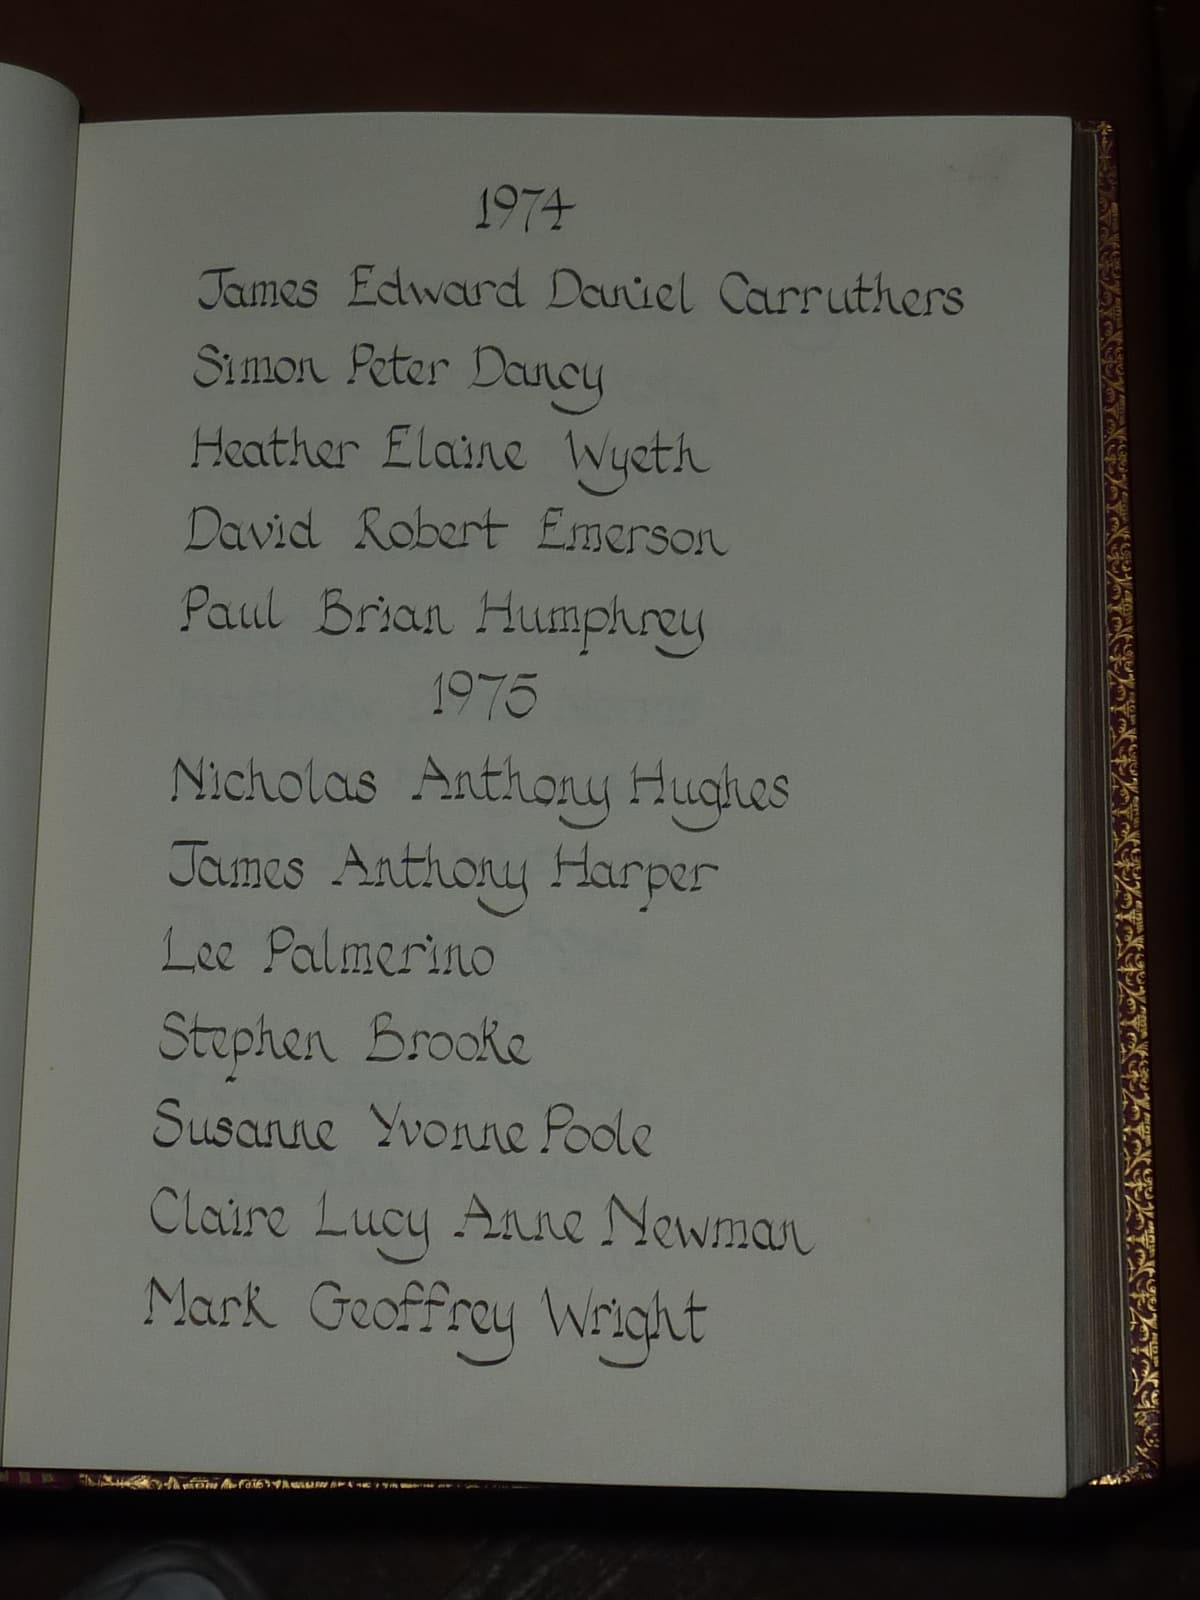 1974
James Edward Daniel Carruthers
Simon Peter Dancy
Heather Elaine Wyeth
David Robert Emerson
Paul Brian Humphrey
1975
Nicholas Anthony Hughes
James Anthony Harper
Lee Palmerino
Stephen Brooke
Susanne Yvonne Poole
Claire Lucy Anne Newman
Mark Geoffrey Wright